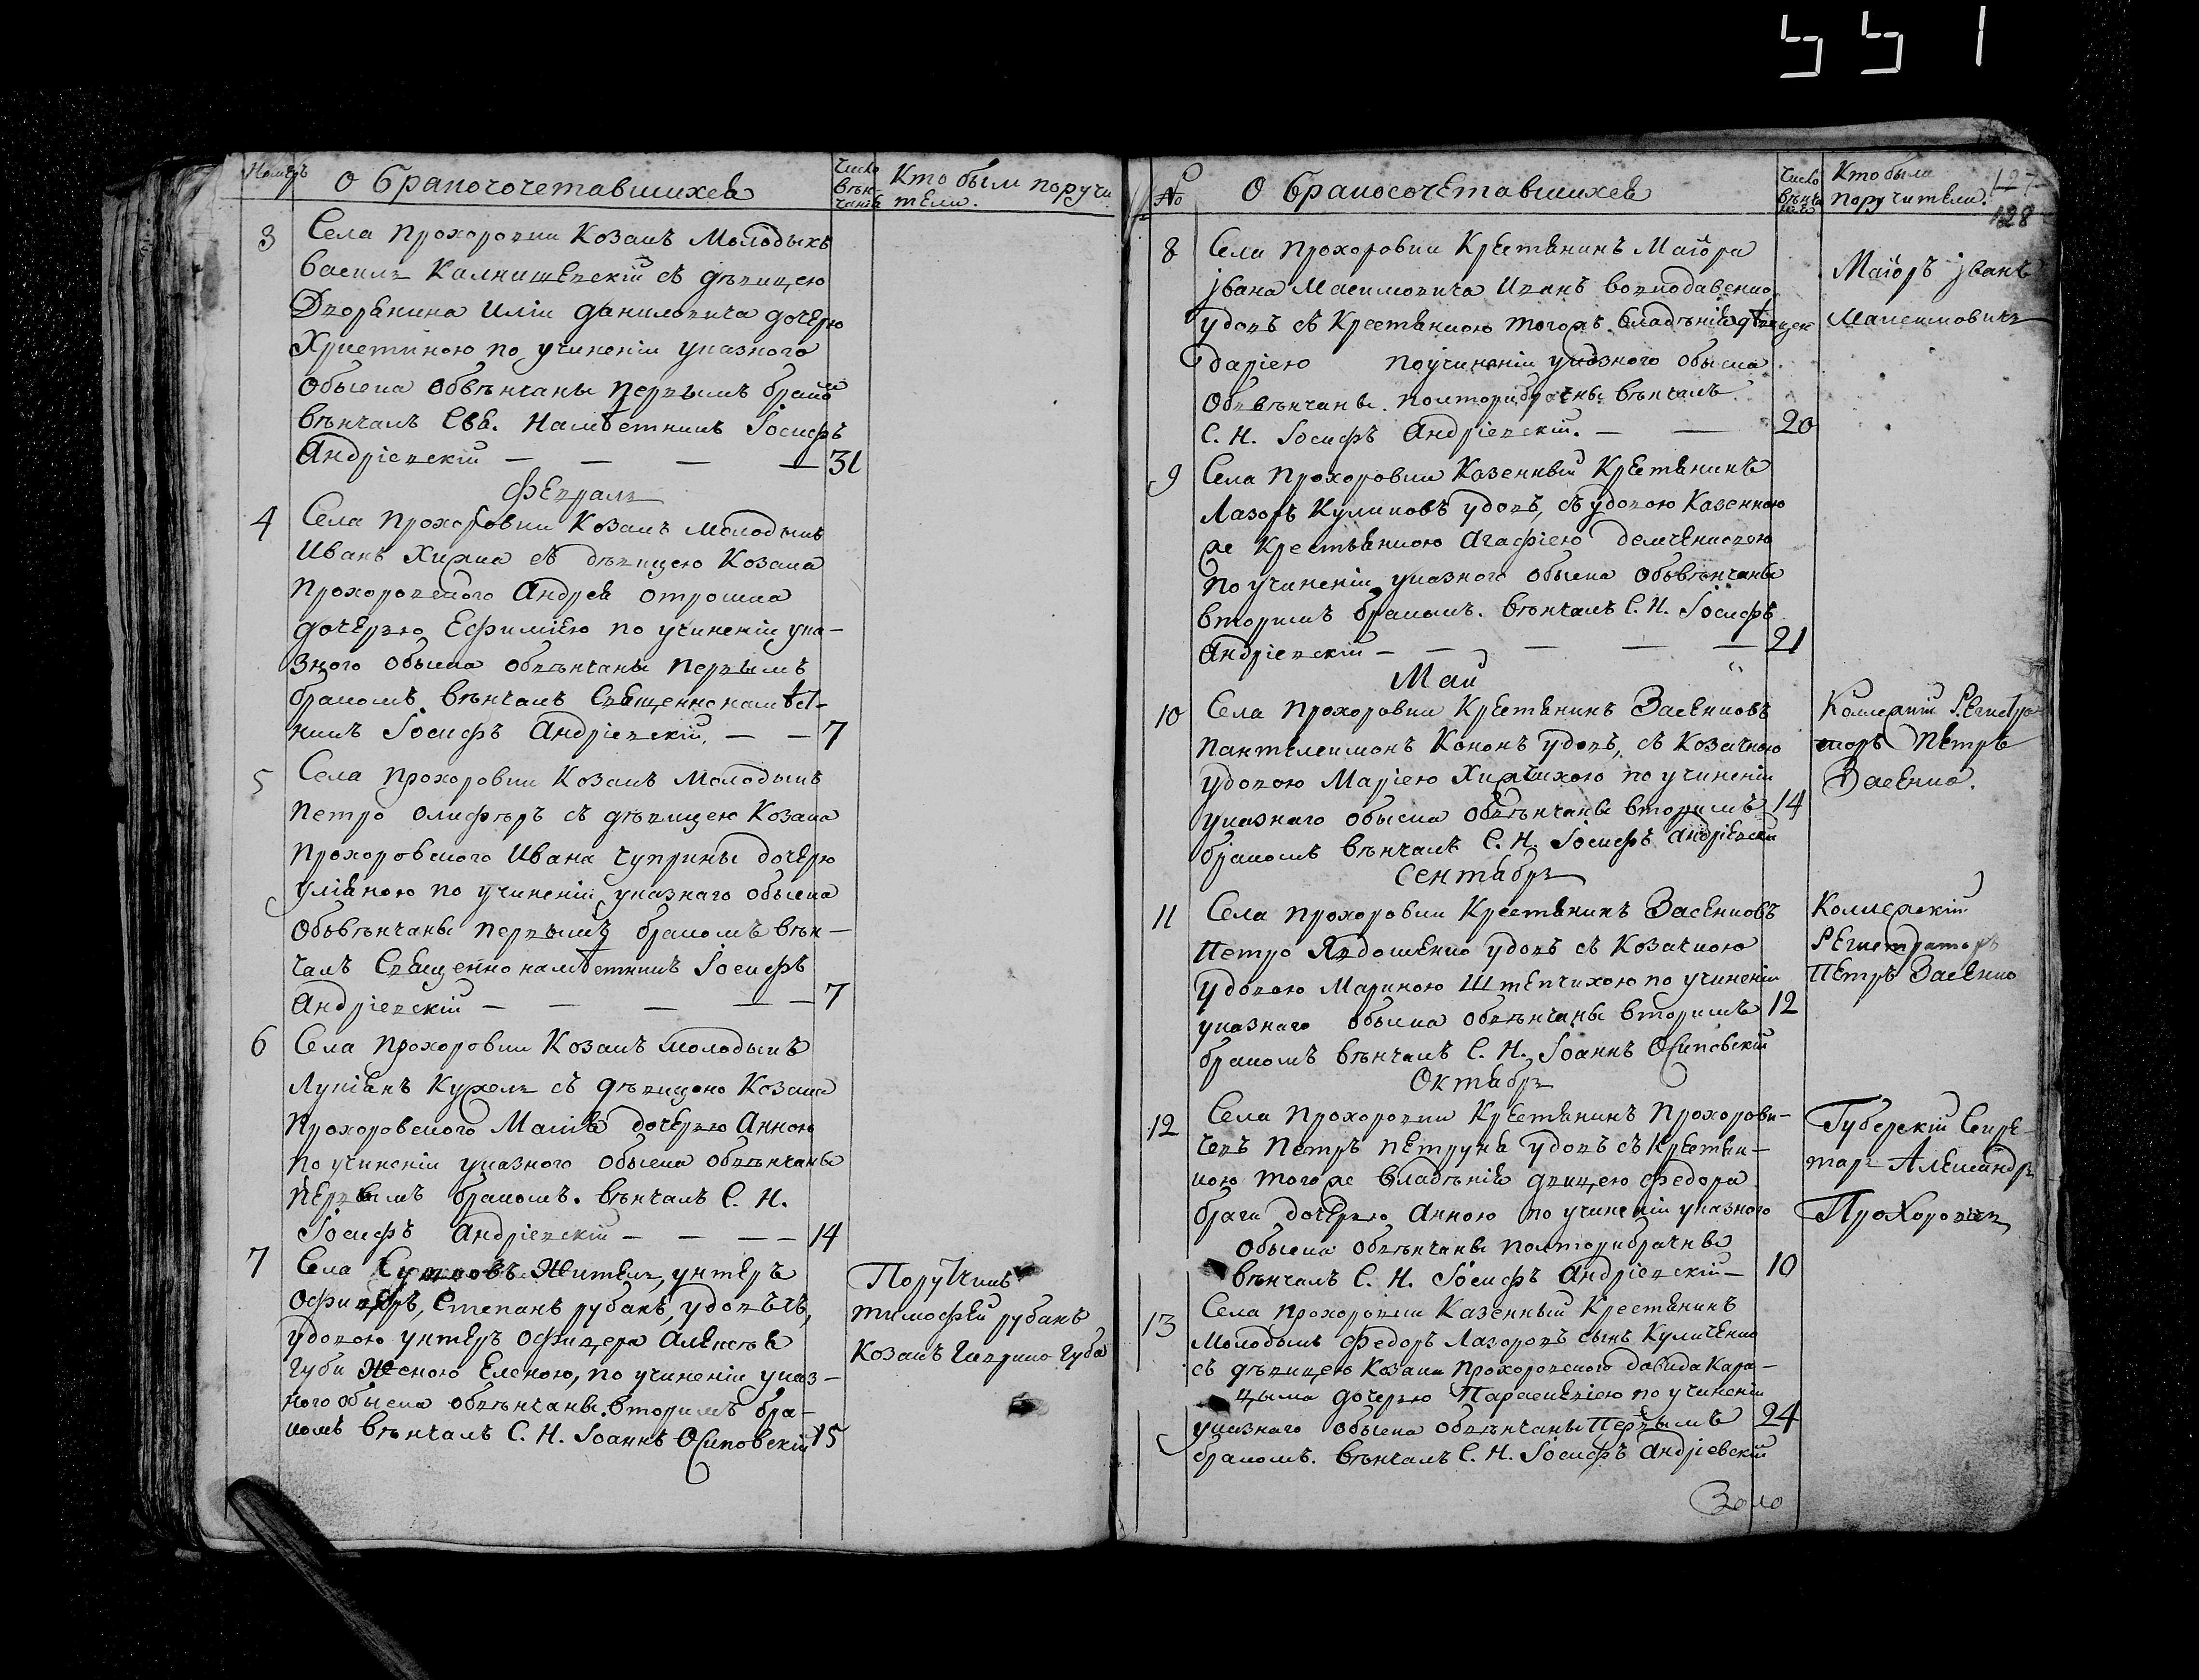 551
Номеръ
О бракосочетавшихся
Число вѣнчанія
Кто были поручители.
3
Села Прохоровки Козакъ Молодыкъ
Василь Калнишевскій съ дѣвицею
Дворянина Иліи Даниловича дочерю
Христиною по учиненіи указного
обыска обвѣнчаны первымъ бракомъ
вѣнчалъ Свя. Намѣстникъ Іосифъ
Андріевскій — — — — 31
Февраль
4
Села Прохоровки Козакъ молодыкъ
Иванъ Хижка съ дѣвицею Козака
Прохоровского Андрея отрошка
дочерью Ефиміею по учиненіи ука-
зного обыска обвѣнчаны первымъ
бракомъ вѣнчалъ Священнонамѣст-
никъ Іосифъ Андріевскій. — — 7
5
Села Прохоровки Козакъ Молодыкъ
Петро Олиферъ съ дѣвицею Козака
Прохоровского Ивана Чуприны дочерю
Уліяною по учиненіи указнаго обыска
обвѣнчаны первымъ бракомъ вѣн-
чалъ Священнонамѣстникъ Іосифъ
Андріевскій — — — — — 7
6
Села Прохоровки Козакъ молодыкъ
Лукіянъ Кужель съ дѣвицою Козака
Прохоровского дочерью Анною
по учиненіи указного обыска обвѣнчаны
первымъ бракомъ. вѣнчалъ С. Н.
Іосифъ Андріевскій — — — — 14
7
Села Житель, унтеръ
офицеръ, Степанъ рубанъ, удовъ съ,
удовою унтеръ офицера Алексѣя
Губи женою Еленою, по учиненіи указ-
ного обыска обвѣнчаны вторимъ бра-
комъ вѣнчалъ С. Н. Іоаннъ Осиповскій 15
Поручикъ
тимофѣй рубанъ
Козакъ Гаврило Губа
№
О бракосочетавшихся
Число вѣнчанія
Кто были
поручители.
127
128
8
Села Прохоровки Крестянинъ Маіора
Івана Максимовича Иванъ
удовъ съ Крестянкою тогожъ владѣнія дѣвицею
Даріею по учиненіи указного обыска
обвѣнчаны. полторибрачны вѣнчалъ
С. Н. Іосифъ Андріевскій. — — 20
Маіоръ Іванъ
Максимовичъ
9
Села Прохоровки Казенный Крестянинъ
Лазоръ Куликовъ удовъ, съ удовою Казенною
же Крестьянкою Агафіею демченковою
по учиненіи указного обыска обвѣнчаны
вторимъ бракомъ. вѣнчалъ С. Н. Іосифъ
Андріевскій — — — — — 21
Май
10
Села Прохоровки Крестянинъ Засенковъ
Пантелеимонъ Кононъ удовъ, съ Козачкою
удовою Маріею Хижчихою по учиненіи
указнаго обыска обвѣнчаны вторимъ 14
бракомъ вѣнчалъ С. Н. Іосифъ Андріевскій
Коллежкій Регистра-
торъ Петръ
Засенко.
Сентябрь
11
Села Прохоровки Крестянинъ Засенковъ
Петро Явдошенко удовъ съ Козачкою
удовою Мариною Штепчихою по учиненіи
указнаго обыска обвѣнчаны вторимъ 12
бракомъ вѣнчалъ С. Н. Іоаннъ Осиповскій
Коллежскій
Регистраторъ
Петръ Засенко
Октябрь
12
Села Прохоровки Крестянинъ Прохорови-
чевъ Петръ Петруня удовъ съ Крестян-
кою того же владѣнія двицею Федора
браги дочерью Анною по учиненіи указного
обыска обвѣнчаны полторибрачны
вѣнчалъ С. Н. Іосифъ Андріевскій — 10
Губерскій Секре-
тарь Александръ
Прохоровичъ
13
Села Прохоровки Казенный Крестянинъ
молодыкъ Федоръ Лазоровъ сынъ Куличенко
съ дѣвицею Козака Прохоровского давида Кара-
цыма дочерю Параскевіею по учиненіи
указнаго обыска обвѣнчаны первымъ 24
бракомъ. вѣнчалъ С. Н. Іосифъ Андріевскій